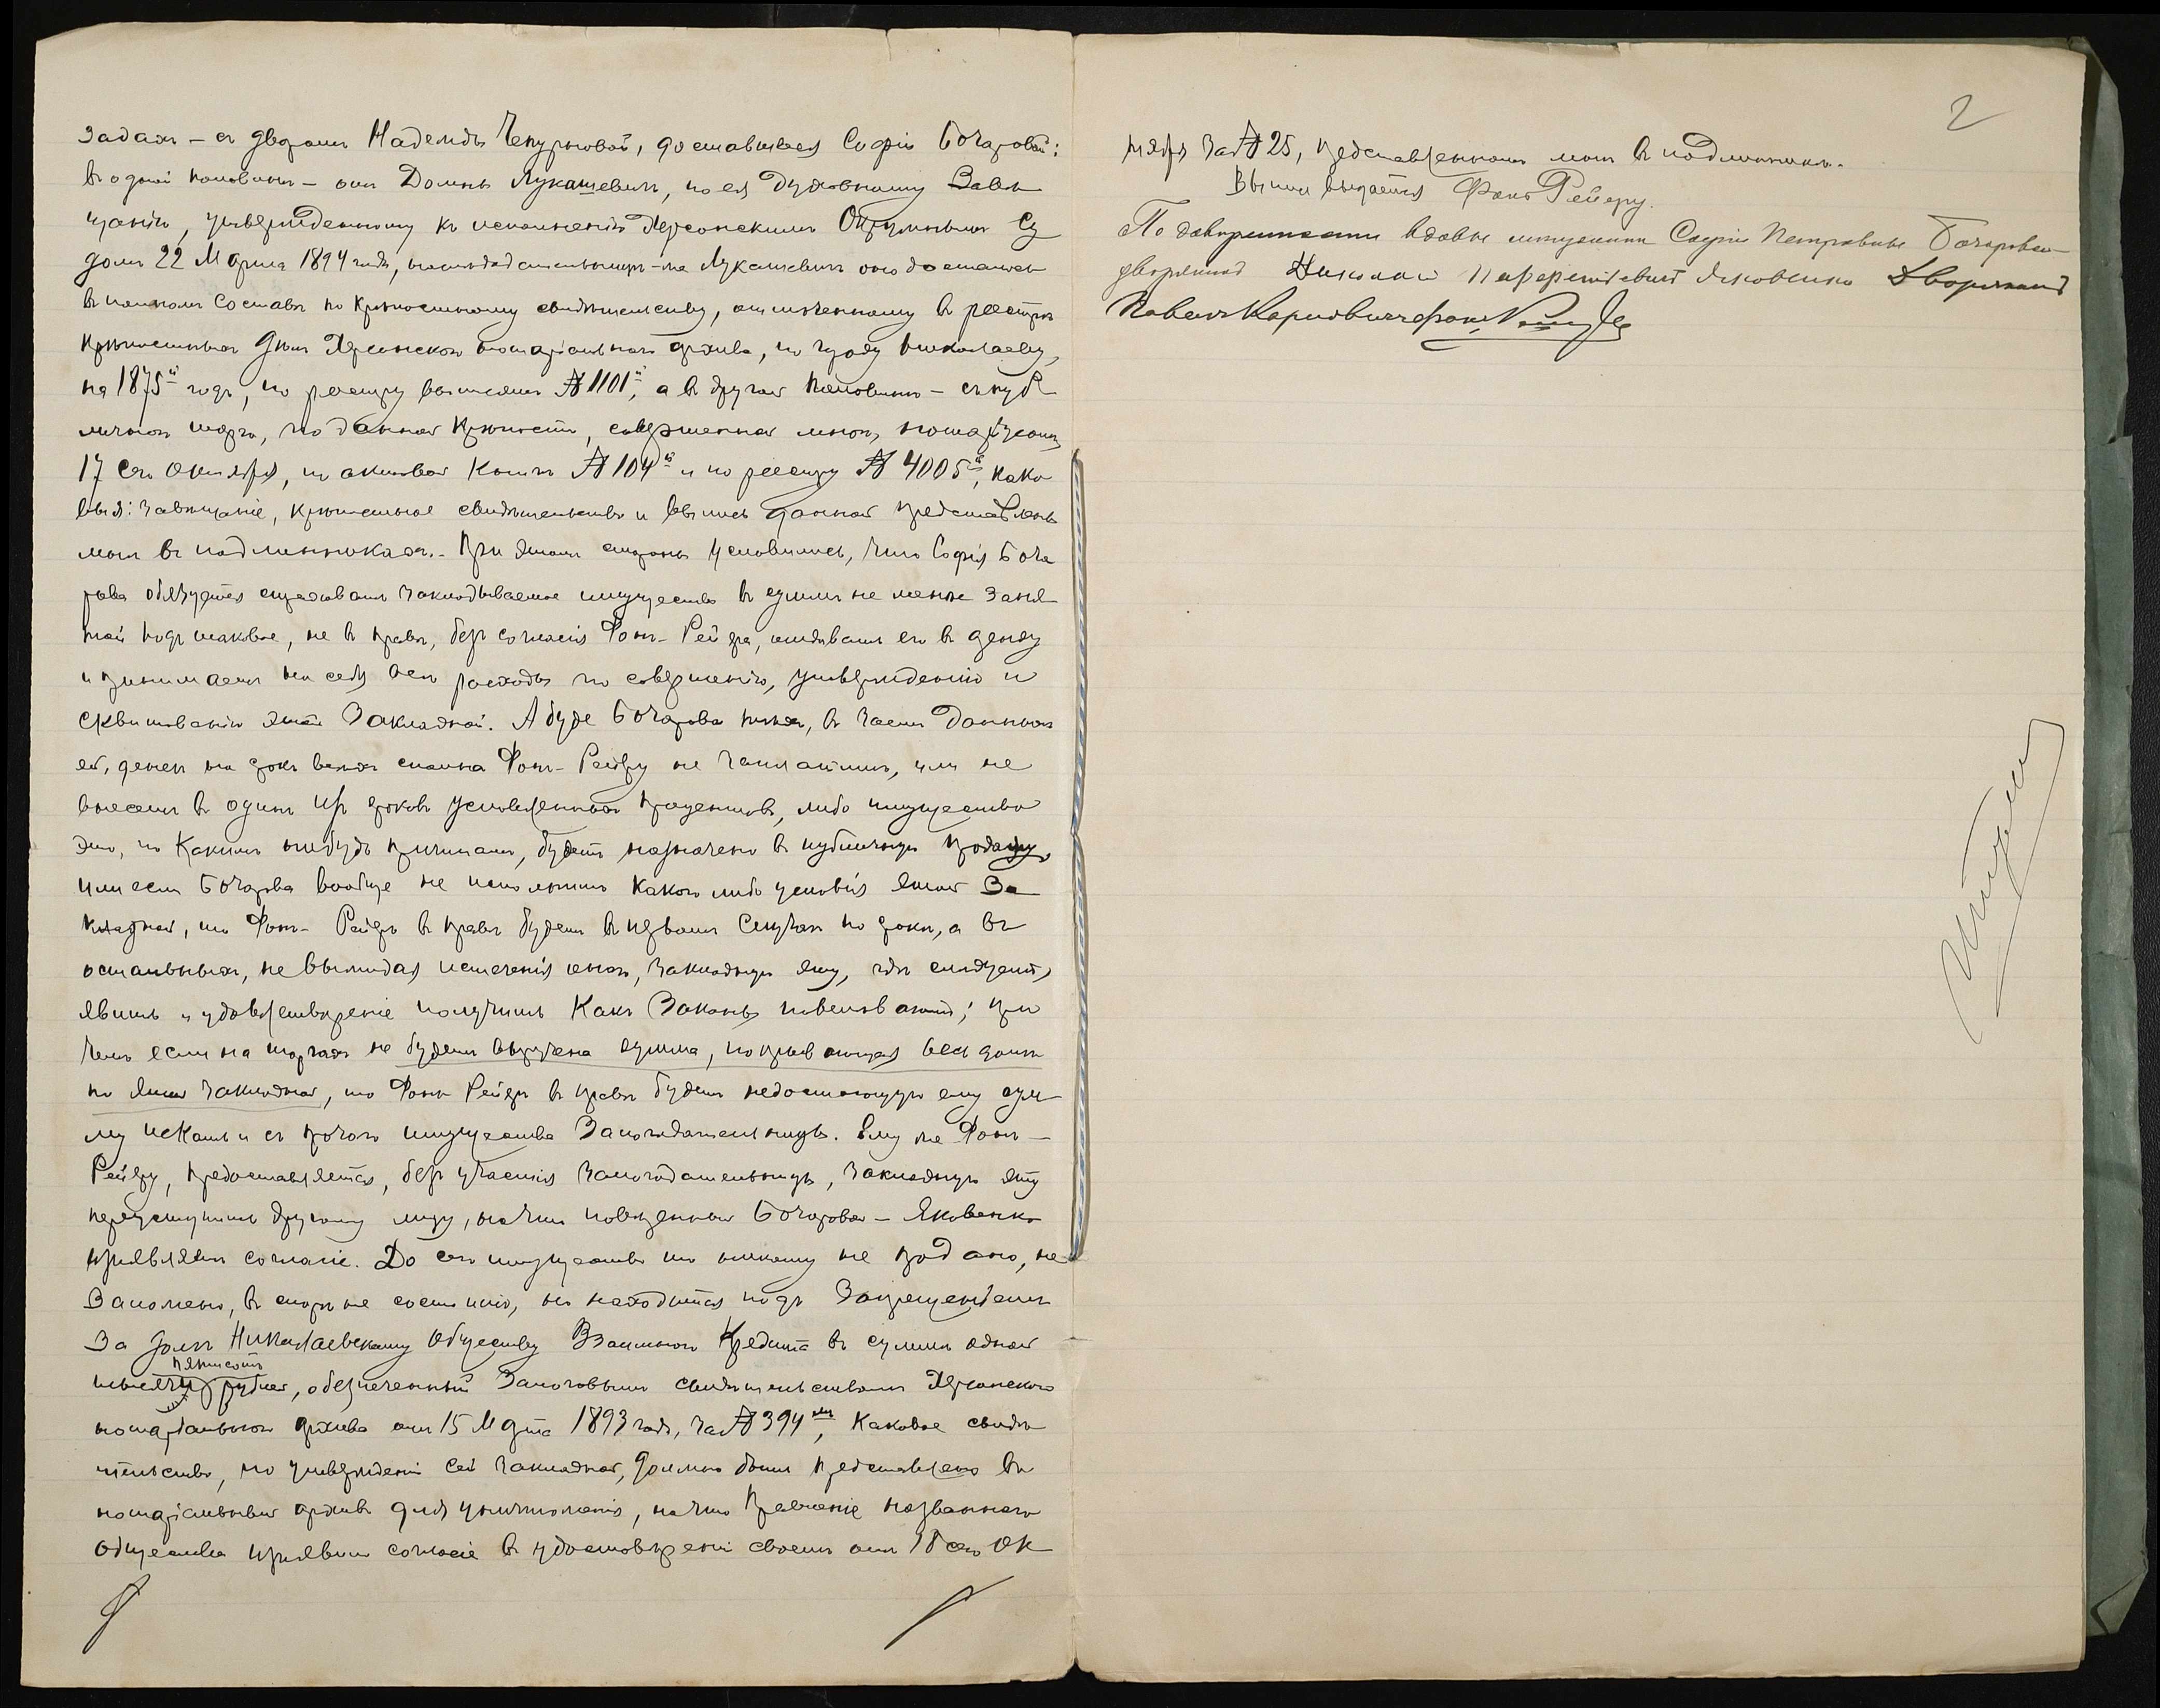 задахъ – съ дворомъ Надежды Чепурновой, доставшееся Софіи Бочаровой:
въ одной половинѣ – отъ Домны Лукашевичъ, по ея духовному Завѣ
щанію, утвержденному къ исполненію Херсонскимъ Окружнымъ Су
домъ 22 Марта 1894 года, наслѣдодательницѣ-же Лукашевичъ оно досталось
въ полномъ составѣ по крѣпостному свидѣтельству, отмѣченному въ реестрѣ
крѣпостныхъ дѣлъ Херсонскаго нотаріальнаго архива, по городу Николаеву,
на 1875й годъ, по реестру выписями № 1101й, а въ другой половинѣ – съ пуб
личнаго торга, по данной крѣпости, совершенной мною, нотаріусомъ
17 сего октября, по актовой книгѣ № 104й и по реестру № 4005й, како
выя: завѣщаніе, крѣпостное свидѣтельство и выпись данной представлены
мнѣ въ подлинникахъ. – При этомъ стороны условились, что Софія Боча
рова обязуется страховать закладываемое имущество въ суммѣ не менѣе заня
той подъ таковое, не въ правѣ, безъ согласія Фонъ-Рейера, отдавать его въ аренду
и принимаетъ на себя всѣ расходы по совершенію, утвержденію и
сквитованію этой Закладной. А буде Бочарова тѣхъ, въ заемъ данныхъ
ей, денегъ на срокъ весьма сполна Фонъ-Рейеру не заплатитъ, или не
внесетъ въ одинъ изъ сроковъ условленныхъ процентовъ, либо имущество
это, по какимъ нибудь причинамъ, будетъ назначено въ публичную продажу,
или если Бочарова вообще не исполнитъ какого либо условія этой За
кладной, то Фонъ-Рейеръ въ правѣ будетъ въ первомъ случаѣ по срокѣ, а въ
остальныхъ, не выжидая истеченія онаго, закладную эту, гдѣ слѣдуетъ,
явить и удовлетвореніе получить какъ Законы повелѣваютъ; при
чемъ если на торгахъ не будетъ выручена сумма, покрывающая весь долгъ
по этой закладной, то Фонъ Рейеръ въ правѣ будетъ недостающую ему сум
му искать и съ прочаго имущества Залогодательницы. Ему же Фонъ –
Рейеру, предоставляется, безъ участія Залогодательницы, закладную эту
переуступить другому лицу, на что повѣренный Бочаровой – Яковенко
изъявляетъ согласіе. До сего имущество то никому не продано, не
заложено, въ спорѣ не состоитъ, но находится подъ Запрещеніемъ
За долгъ Николаевскому Обществу Взаимнаго Кредита въ суммѣ одной
пятисотъ
тысячи рублей, обезпеченный Залоговымъ свидѣтельствомъ Херсонскаго
нотаріальнаго архива отъ 15 Марта 1893 года, за № 394мъ, каковое свидѣ
тельство, по утвержденіи сей закладной, должно быть представлено въ
нотаріальный архивъ для уничтоженія, на что Правленіе названнаго
Общества изъявило согласіе въ удостовѣреніи своемъ отъ 18 сего Ок
2
тября за № 25, представленномъ мнѣ въ подлинникѣ.
Выпись выдается Фонъ Рейеру.
По довѣренности вдовы Софіи Петровны Бочаровой
дворянинъ Николай Яковенко Дворянинъ
Павелъ Карловичъ фонъ Рейеръ